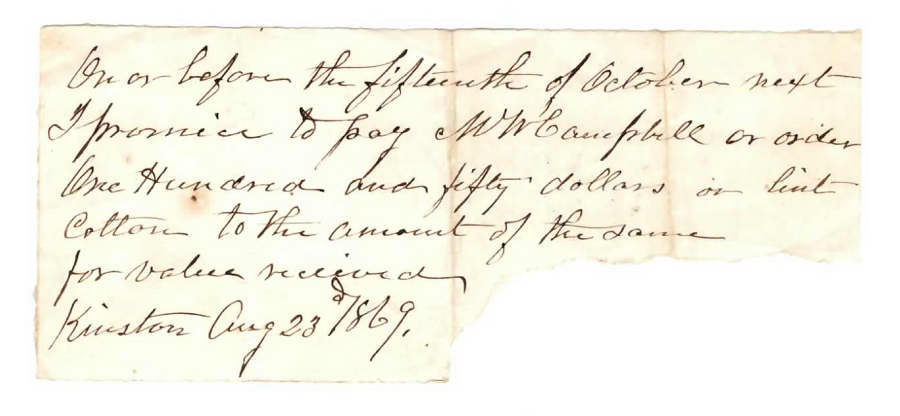 On or before the fifteenth of October next
I promise to pay M W Campbell or order
One Hundred and fifty dollars or lint
Cotton to the amount of the same
for value recieved
Kinston Aug 23d 1869.